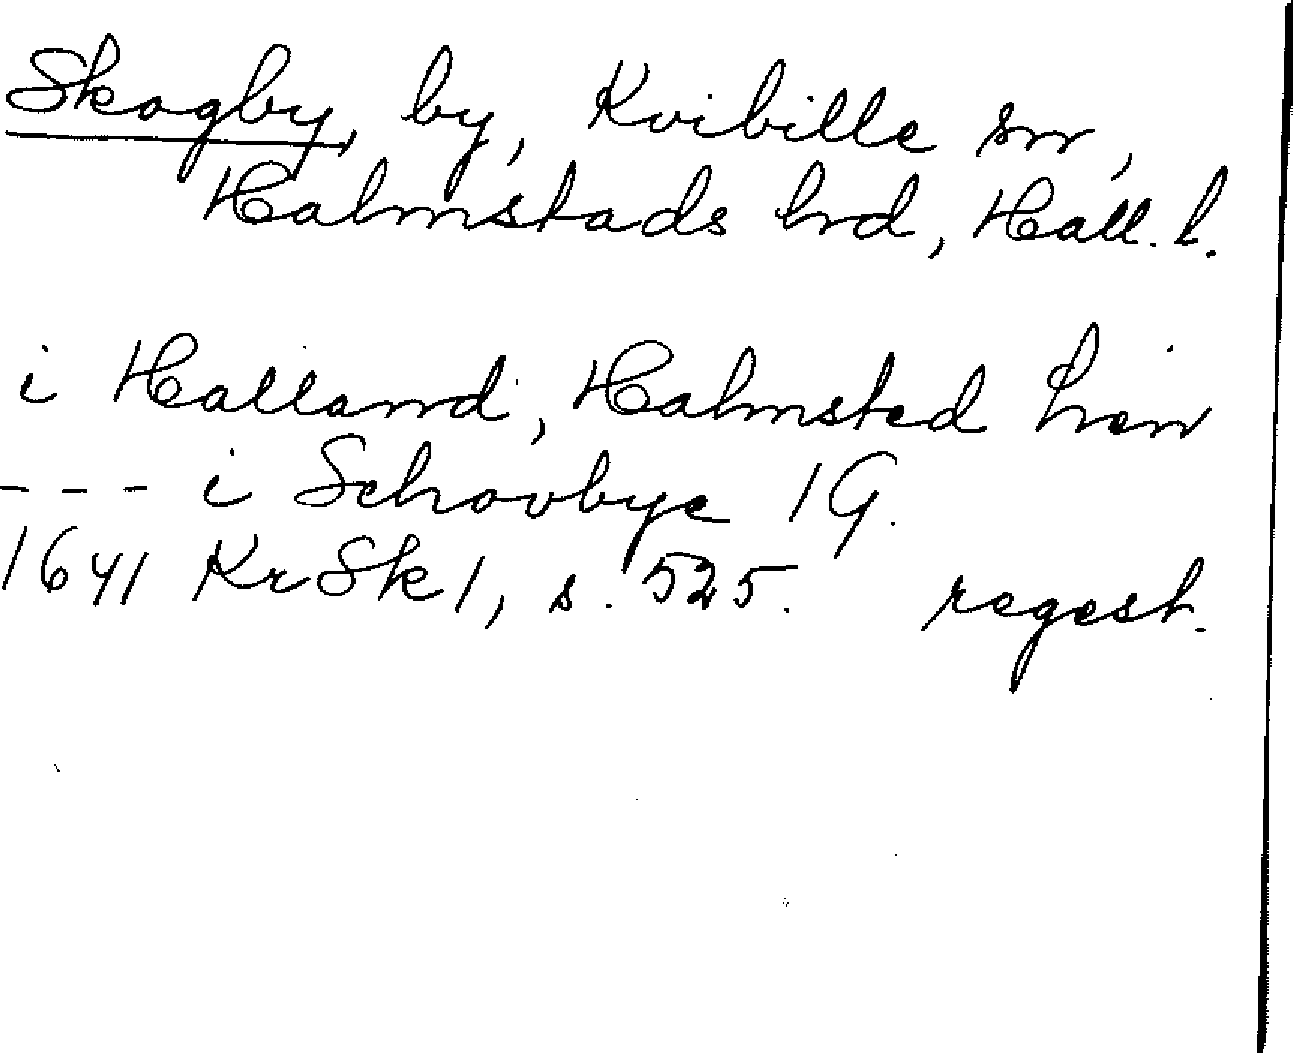 Skogby, by, Kvibille sn,
Halmstads hrd, Hall. l.
i Halland, Halmsted hren
--- i Schovbye 1 G.
1641 KrSk 1, s. 525. regest.